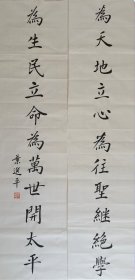 為天地立心為往聖繼絕學
為生民立命為萬世開太平
葉選平